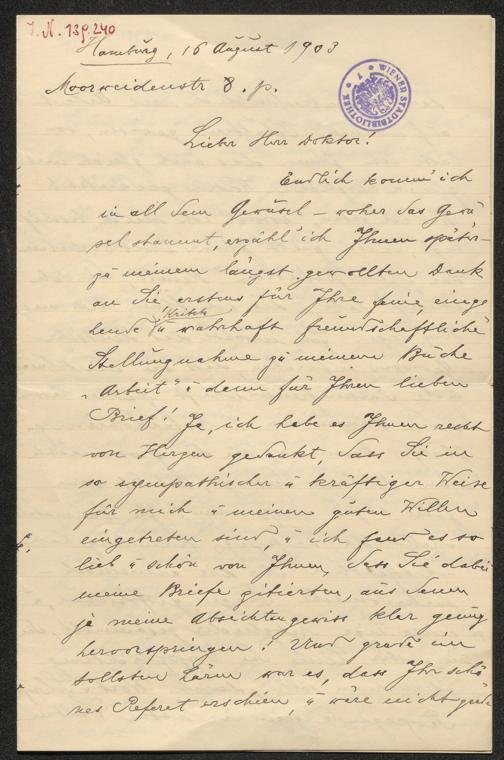 J. N. 139.240
Hamburg, 16 August 1903
Moorweidenstr 8. p.
WIENER STADTBIBLIOTHEK
Lieber Herr Doktor!
Endlich komm' ich
in all dem Gewusel – woher das Gewu
sel stammt, erzähl' ich Ihnen später –
zu meinem längst gewollten Dank
an Sie, erstens für Ihre feine, einge
Kritik
hende u wahrhaft freundschaftliche
Stellungnahme zu meinem Buche
„Arbeit" u dann für Ihren lieben
Brief! Ja, ich habe es Ihnen recht
von Herzen gedankt, dass Sie in
so sympathischer u kräftiger Weise
für mich u meinen guten Willen
eingetreten sind, u ich fand es so
lieb u schön von Ihnen, dass Sie dabei
meine Briefe zitierten, aus denen
ja meine Absichten gewiss klar genug
hervorspringen! Und grade im
tollsten Lärm war es, dass Ihr schö
nes Referat erschien, u wäre nicht grade